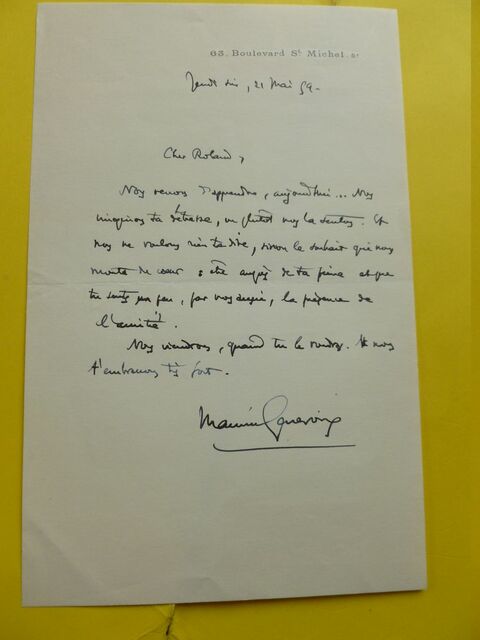 63. Boulevard St Michel. 5e
Jeudi soir, 21 Mai 59.
Cher Roland,
Nous venons d'apprendre, aujourd'hui... Nous
imaginons ta détresse, ou plutôt nous la sentons. Et
nous ne voulons rien te dire, sinon le souhait que nous
monte du cœur : être auprès de ta peine et que
tu sentes un peu, par nos, la présence de
l'amitié.
Nous viendrons, quand tu le voudras. Et nous
t'embrassons très fort.